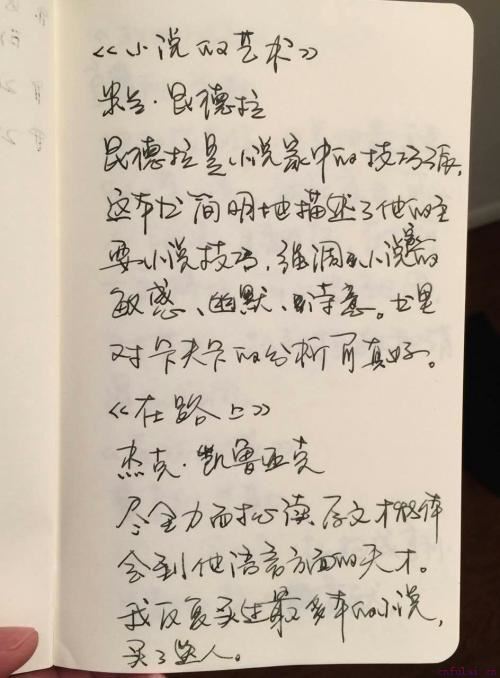 《小说的艺术》
米兰·昆德拉
昆德拉是小说家中的技巧派,
这本书简明地描述了他的主
要小说技巧,强调了小说家的
敏感、幽默、诗意。书里
对卡夫卡的分析可真好。
《在路上》
杰克·凯鲁亚克
尽全力而 读原文才能体
会到他语言方面的天才。
我反复买过最多本的小说,
买了送人。